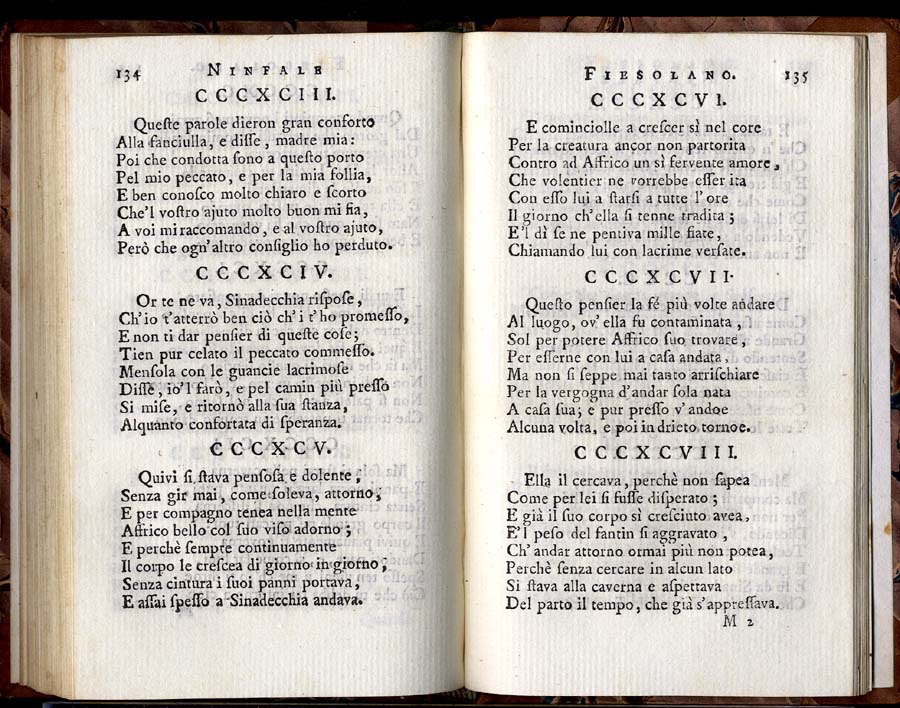 134 NINFALE
CCCXCIII.
Queſte parole dieron gran conforto
Alla fanciulla, e diſſe, madre mia:
Poi che condotta ſono a queſto porto
Pel mio peccato, e per la mia follia,
E ben conoſco molto chiaro e ſcorto
Che'l voſtro ajuto molto buon mi fia,
A voi mi raccomando, e al voſtro ajuto,
Però che ogn'altro conſiglio ho perduto.
CCCXCIV.
Or te ne va, Sinadecchia riſpoſe,
Ch'io t'atterrò ben ciò ch'i t'ho promeſſo,
E non ti dar penſier di queſte coſe;
Tien pur celato il peccato commeſſo.
Menſola con le guancie lacrimoſe
Diſſe, io'l farò, e pel camin più preſſo
Si miſe, e ritornò alla ſua ſtanza,
Alquanto confortata di ſperanza.
CCCXCV.
Quivi ſi ſtava penſoſa e dolente,
Senza gir mai, come ſoleva, attorno,
E per compagno tenea nella mente
Affrico bello col ſuo viſo adorno;
E perchè ſempre continuamente
Il corpo le creſcea di giorno in giorno,
Senza cintura i ſuoi panni portava,
E aſſai ſpeſſo a Sinadecchia andava.
FIESOLANO. 135
CCCXCVI.
E cominciolle a creſcer sì nel core
Per la creatura ancor non partorita
Contro ad Affrico un sì fervente amore,
Che volentier ne vorrebbe eſſer ita
Con eſſo lui a ſtarſi a tutte l'ore
Il giorno ch'ella ſi tenne tradita;
E'l dì ſe ne pentiva mille fiate,
Chiamando lui con lacrime verſate.
CCCXCVII.
Queſto penſier la fé più volte andare
Al luogo, ov'ella fu contaminata,
Sol per potere Affrico ſuo trovare,
Per eſſerne con lui a caſa andata,
Ma non ſi ſeppe mai tanto arriſchiare
Per la vergogna d'andar ſola nata
A caſa ſua; e pur preſſo v'andoe
Alcuna volta, e poi in drieto tornoe.
CCCXCVIII.
Ella il cercava, perchè non ſapea
Come per lei ſi fuſſe diſperato;
E già il ſuo corpo sì creſciuto avea,
E'l peſo del fantin ſi aggravato,
Ch'andar attorno ormai più non potea,
Perchè ſenza cercare in alcun lato
Si ſtava alla caverna e aſpettava
Del parto il tempo, che già s'appreſſava.
M 2